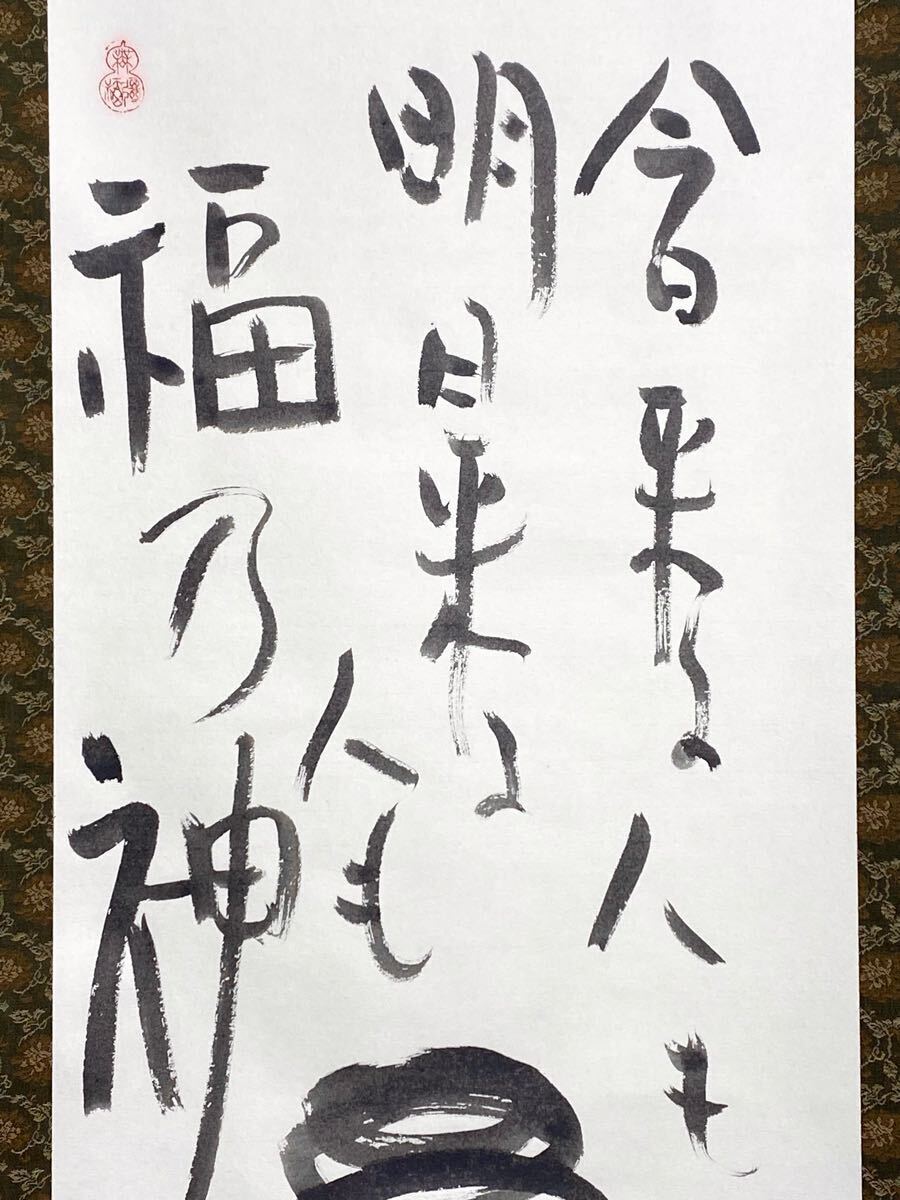 今日来る人も
明日来る人も
福乃神